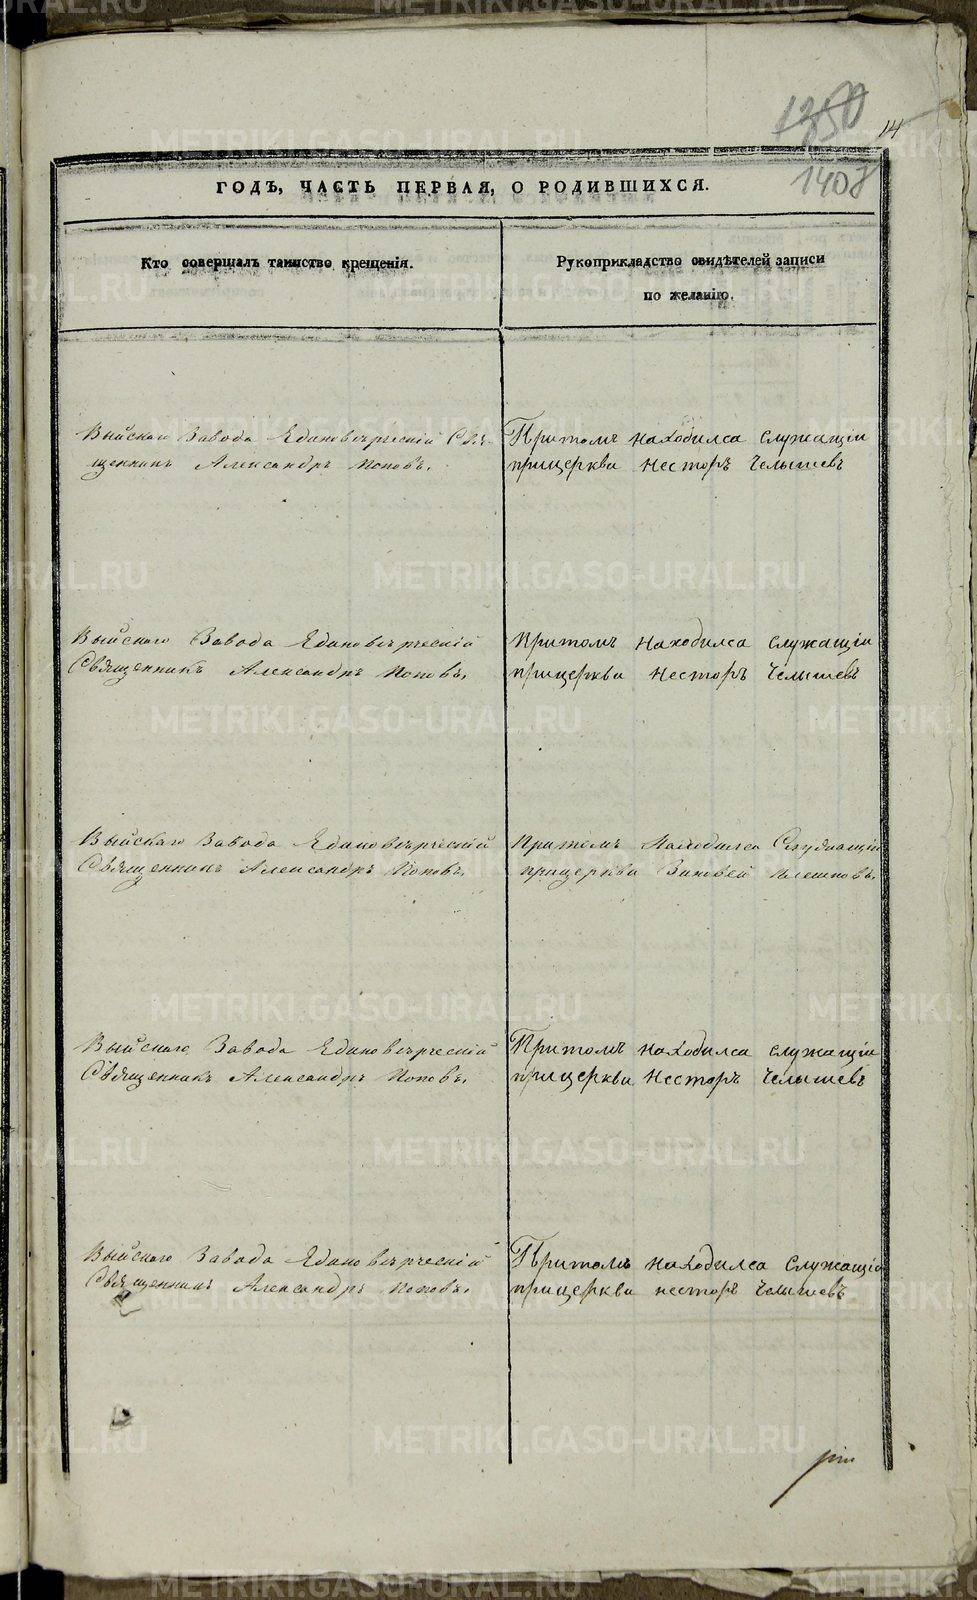 1350
14
1408
ГОДЪ, ЧАСТЬ ПЕРВАЯ, О РОДИВШИХСЯ.
Кто совершалъ таинство крещенія.
Рукоприкладство свидѣтелей записи
по желанію.
Выйскаго Завода Единовѣрческій Свя-
щенникъ Александръ Поповъ.
Притомъ находился служащіи
прицеркви Несторъ Челышевъ
Выйскаго Завода Единовѣрческій
Священникъ Александръ Поповъ.
Притомъ находился служащіи
прицеркви Несторъ Челышевъ
Выйскаго Завода Единовѣрческій
Священникъ Александръ Поповъ.
Притомъ Находился Служащіи
прицеркви Зиновей
Выйскаго Завода Единовѣрческій
Священникъ Александръ Поповъ.
Притомъ находился служащіи
прицеркви Несторъ Челышевъ
Выйскаго Завода Единовѣрческій
Священникъ Александръ Поповъ.
Притомъ находился Служащіи
прицеркви несторъ Челышевъ
METRIKI.GASO-URAL.RU